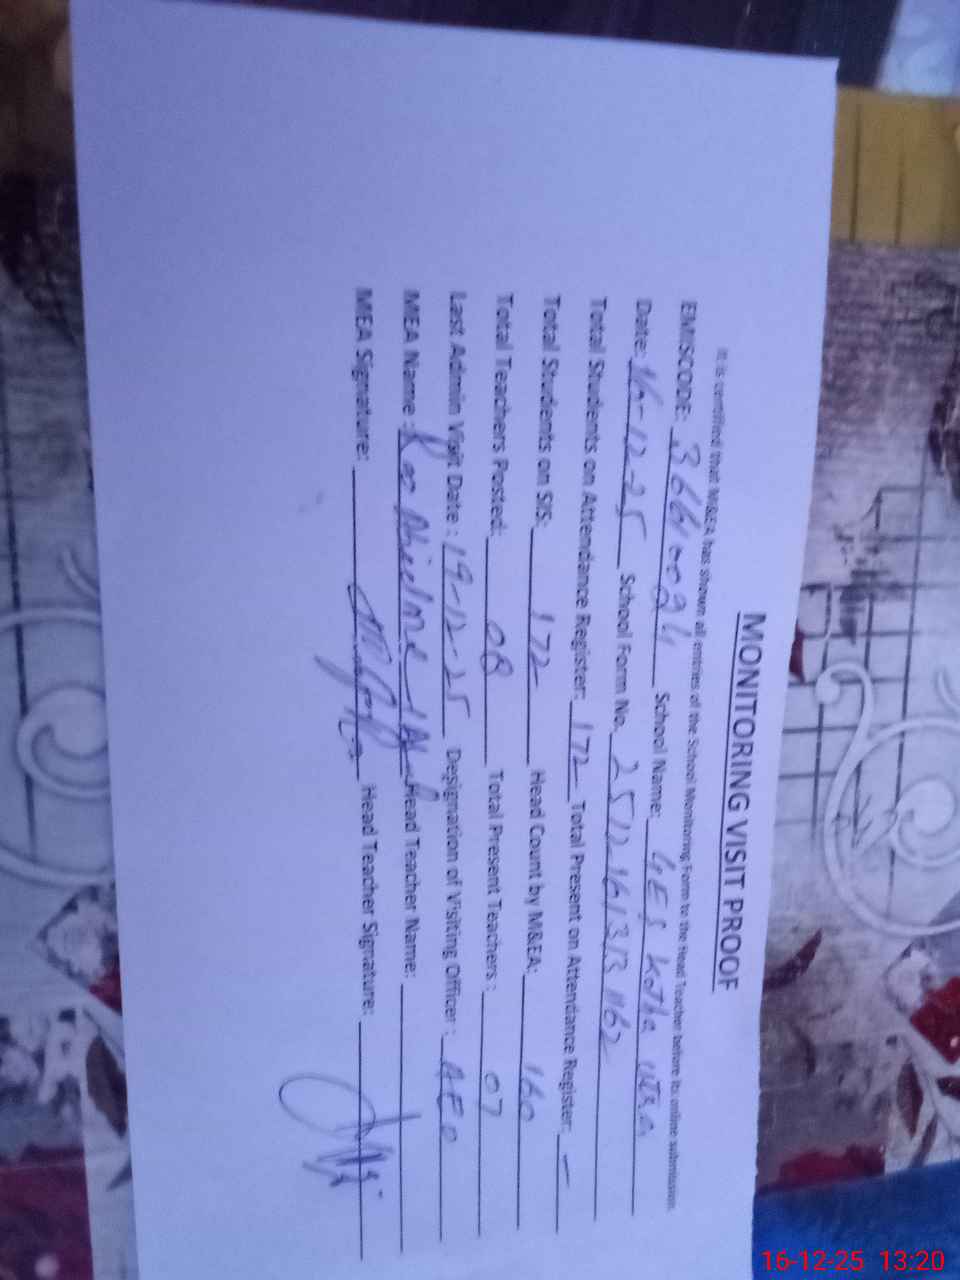 MONITORING VISIT PROOF
It is certified that M&EA has shown all entries of the School Monitoring Form to the Head Teacher before its online submission.
EMISCODE: 36610094 School Name: GES Kotha
Date: 16-12-25 School Form No. 25121613131162
Total Students on Attendance Register: 172 Total Present on Attendance Register: —
Total Students on SIS: 172 Head Count by M&EA: 160
Total Teachers Posted: 08 Total Present Teachers: 07
Last Admin Visit Date: 19-12-25 Designation of Visiting Officer: AEO
MEA Name: Head Teacher Name:
MEA Signature: Head Teacher Signature:
16-12-25 13:20